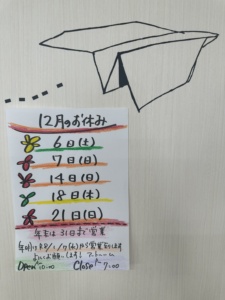 12月のお休み
6日(土)
7日(日)
14日(日)
18日(木)
21日(日)
年末は31日まで営業
年明けは
よろしくお願いします!
Open 10:00 Close 7:00